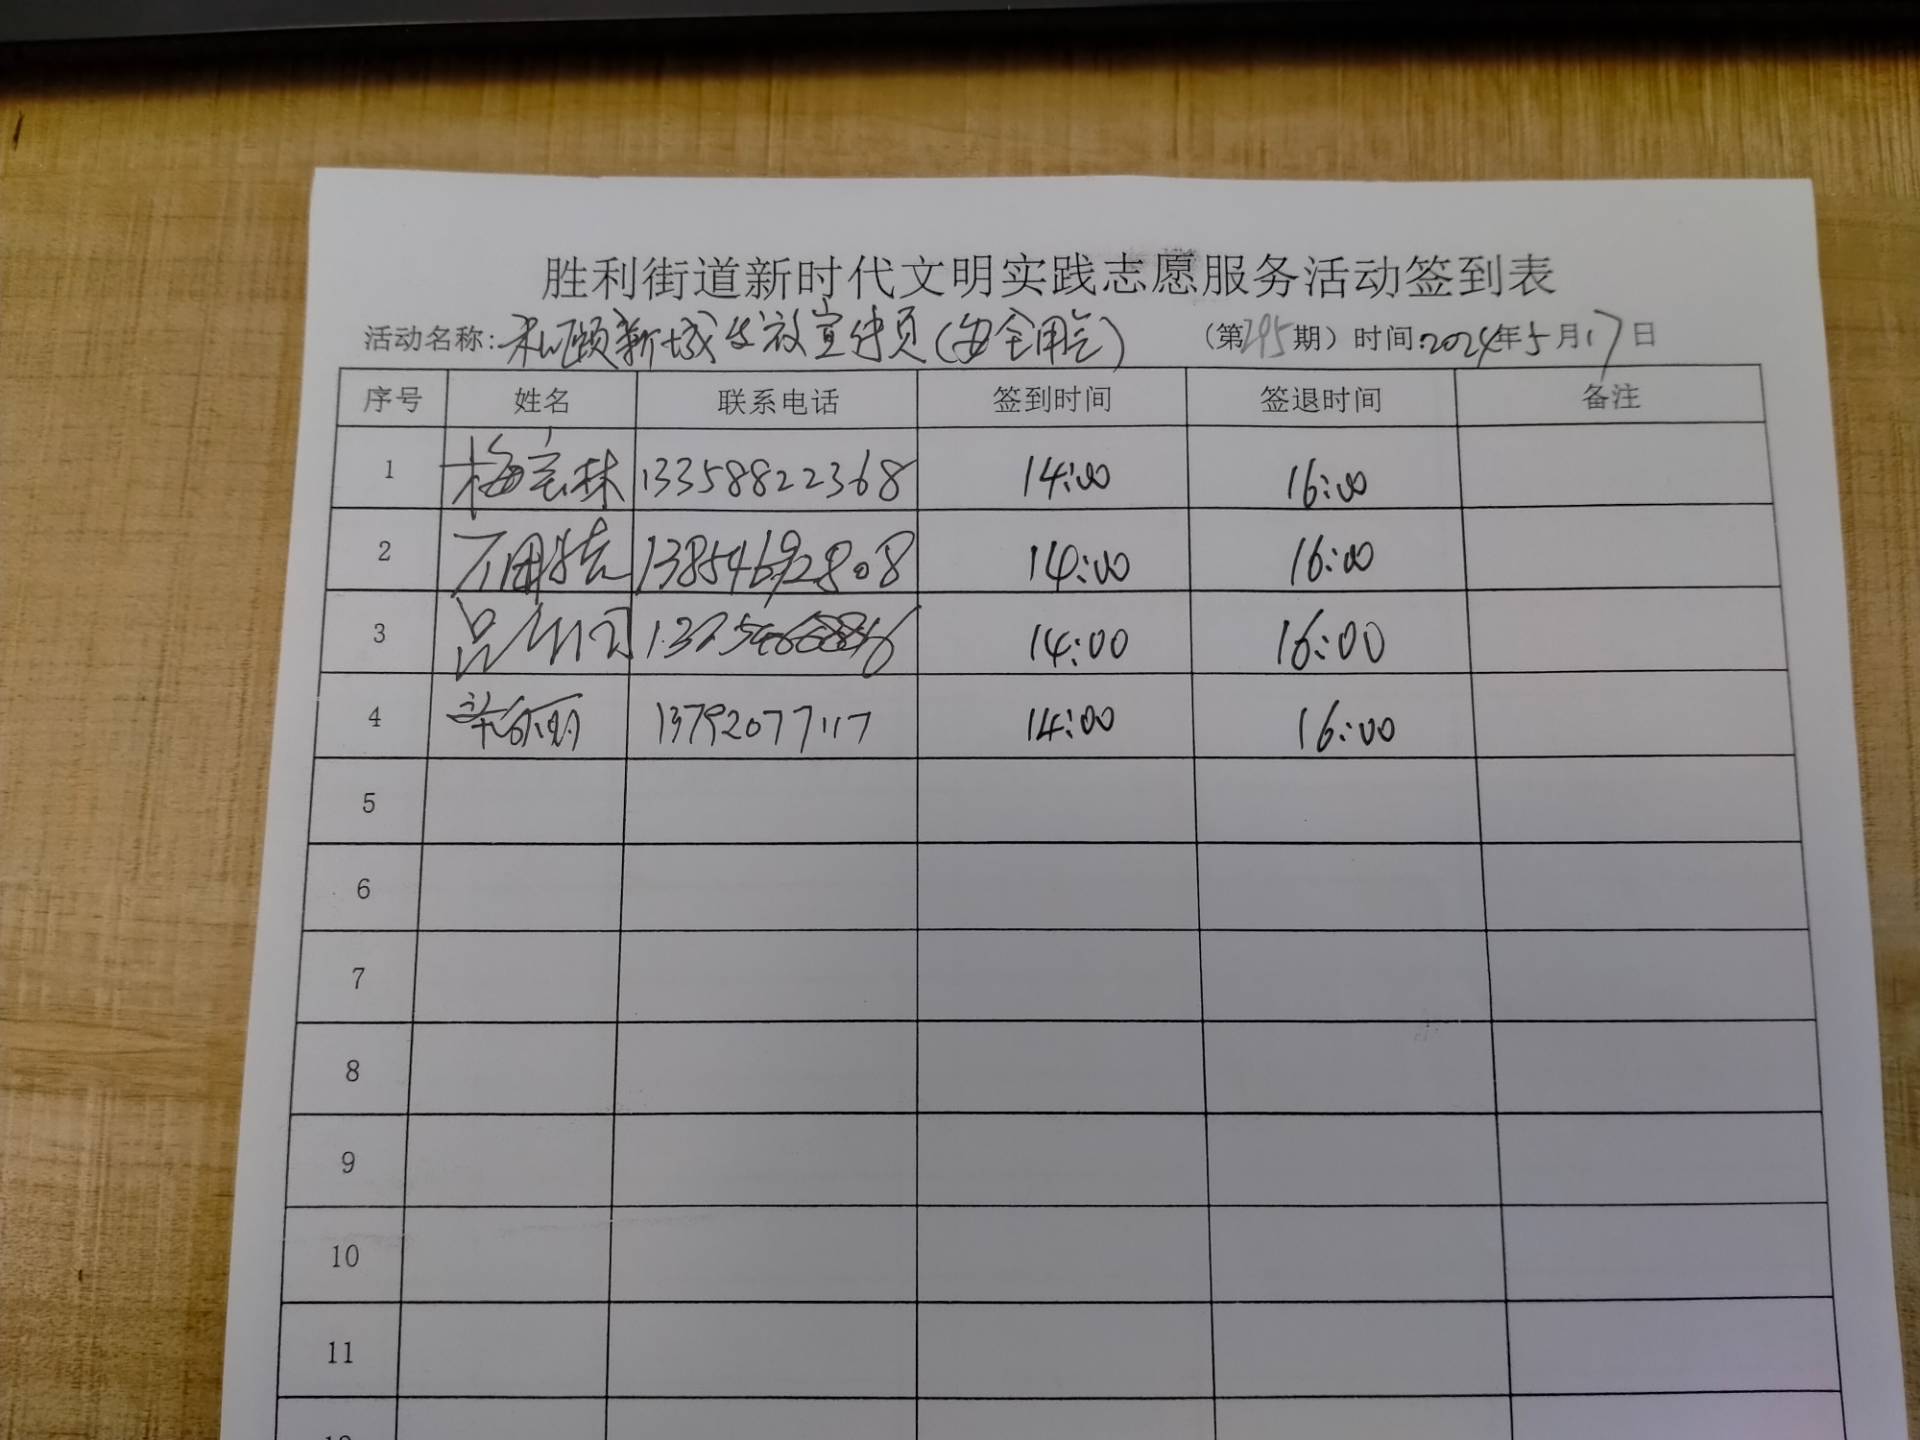 胜利街道新时代文明实践志愿服务活动签到表
活动名称:和颐新城发放宣传页(安全用气) (第295期) 时间:2024年5月17日
序号 姓名 联系电话 签到时间 签退时间 备注
1 梅宝林 13358822368 14:00 16:00
2 13854692808 14:00 16:00
3 14:00 16:00
4 13792077117 14:00 16:00
5
6
7
8
9
10
11